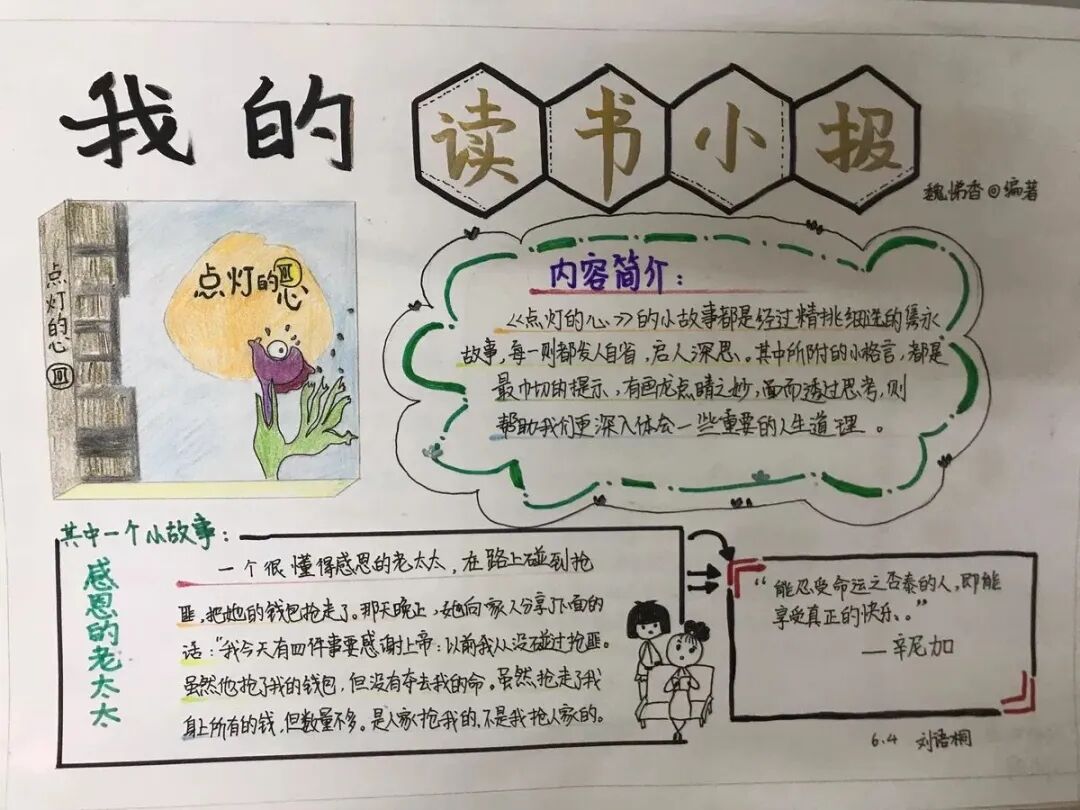 我的读书小报
魏悌香@编著
点灯的心
III
点灯的心 III
内容简介：
《点灯的心》的小故事都是经过精挑细选的隽永
故事，每一则都发人自省，启人深思。其中所附的小格言，都是
最巾切的提示，有画龙点睛之妙，面而透过思考，则
帮助我们更深入体会一些重要的人生道理。
其中一个小故事：
感恩的老太太
一个很懂得感恩的老太太，在路上碰到抢
匪，把她的钱包抢走了。那天晚上，她向家人分享了下面的
话："我今天有四件事要感谢上帝：以前我从没碰过抢匪。
虽然他抢了我的钱包，但没有夺去我的命。虽然抢走了我
身上所有的钱，但数量不多。是人家抢我的，不是我抢人家的。
"能忍受命运之否泰的人，即能
享受真正的快乐。"
—辛尼加
6.4 刘语桐